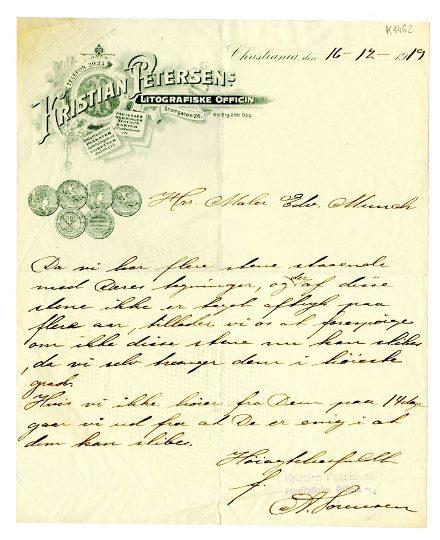 K1462
Christiania, den 16-12-1919
TELEFON 3023
KRISTIAN PETERSENS
LITOGRAFISKE OFFICIN
Storgaten 26.
Hrr. Maler Edv. Munch
Da vi har flere stene staaende
med Deres tegninger, og der af disse
stene ikke er taget aftryk paa
flere aar, tillader vi os at forespørge
om ikke disse stene nu kan slibes
, da vi selv trænger dem i høieste
grad.
Hvis vi ikke hører fra Dem paa 14 dage
gaar vi ud fra at De er enig i at
dem kan slibes.
Høiagtelsesfuldt
Kristian Petersens
f.
A. Sørensen